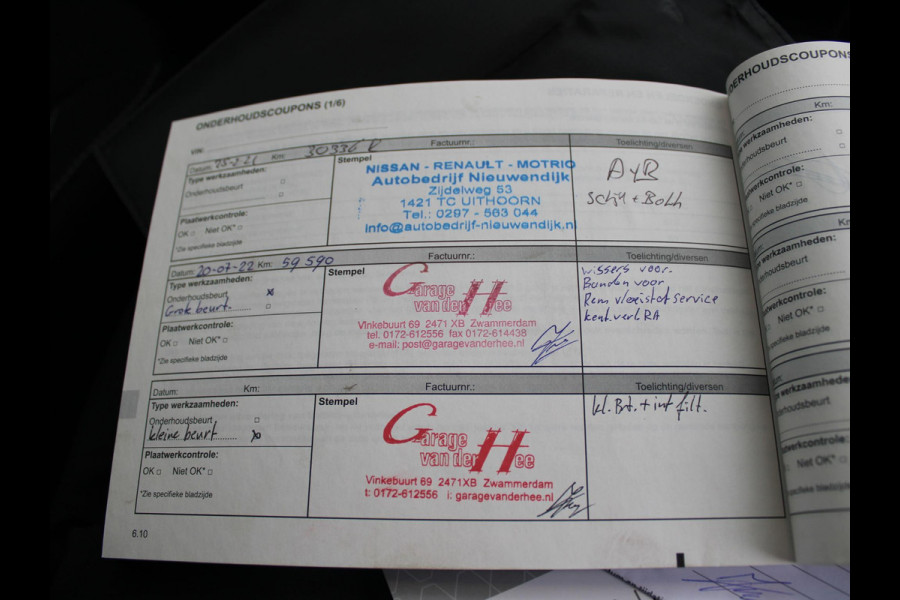 ONDERHOUDSCOUPONS (1/6)
VIN:
Datum: Km: 30336 Factuurnr.: Toelichting/diversen
Type werkzaamheden:
Onderhoudsbeurt □
□
Plaatwerkcontrole:
OK □ Niet OK* □
*Zie specifieke bladzijde
Stempel
NISSAN - RENAULT - MOTRIO
Autobedrijf Nieuwendijk
Zijdelweg 53
1421 TC UITHOORN
Tel.: 0297 - 563 044
info@autobedrijf-nieuwendijk.nl
Datum: 20-07-22 Km: 59 590 Factuurnr.: Toelichting/diversen
Type werkzaamheden:
Onderhoudsbeurt x
Grote beurt. □
Plaatwerkcontrole:
OK □ Niet OK* □
*Zie specifieke bladzijde
Stempel
Garage
van der Hee
Vinkebuurt 69 2471 XB Zwammerdam
tel. 0172-612556 fax 0172-614438
e-mail: post@garagevanderhee.nl
wissers voor.
Banden voor
Rem vloeistof service
kent.verl RA
Datum: Km: Factuurnr.: Toelichting/diversen
Type werkzaamheden:
Onderhoudsbeurt □
kleine beurt x
Plaatwerkcontrole:
OK □ Niet OK* □
*Zie specifieke bladzijde
Stempel
Garage
van der Hee
Vinkebuurt 69 2471XB Zwammerdam
t: 0172-612556 i: garagevanderhee.nl
kl. Brt. + int filt.
6.10
DERHOUDSCOUPONS
Km:
werkzaamheden:
houdsbeurt □
werkcontrole:
Niet OK* □
specifieke bladzijde